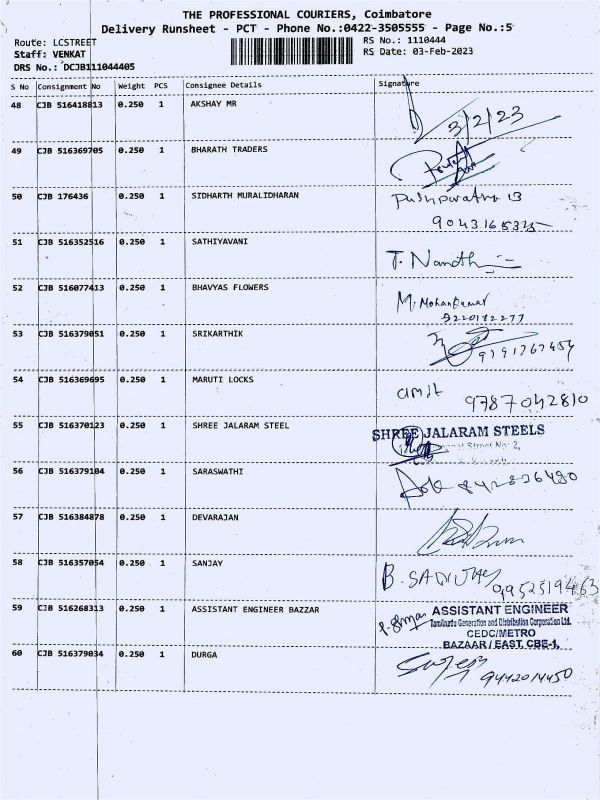 THE PROFESSIONAL COURIERS, Coimbatore
Delivery Runsheet - PCT - Phone No.:0422-3505555 - Page No.:5
Route: LCSTREET
RS No.: 1110444
Staff: VENKAT
RS Date: 03-Feb-2023
DRS No.: DCJB111044405
S No Consignment No Weight PCS Consignee Details Signature
48 CJB 516418813 0.250 1 AKSHAY MR
3/2/23
49 CJB 516369705 0.250 1 BHARATH TRADERS
50 CJB 176436 0.250 1 SIDHARTH MURALIDHARAN
51 CJB 516352516 0.250 1 SATHIYAVANI
T. Nandhini
52 CJB 516077413 0.250 1 BHAVYAS FLOWERS
M. Mohankumar
53 CJB 516379051 0.250 1 SRIKARTHIK
54 CJB 516369695 0.250 1 MARUTI LOCKS
amit
9787042810
55 CJB 516370123 0.250 1 SHREE JALARAM STEEL
SHREE JALARAM STEELS
Street No: 2,
56 CJB 516379104 0.250 1 SARASWATHI
57 CJB 516384878 0.250 1 DEVARAJAN
58 CJB 516357054 0.250 1 SANJAY
B. SANJAY
9952519463
59 CJB 516268313 0.250 1 ASSISTANT ENGINEER BAZZAR
ASSISTANT ENGINEER
Tamilnadu Generation and Distribution Corporation Ltd.
CEDC/METRO
BAZAAR / EAST, CBE-1,
60 CJB 516379034 0.250 1 DURGA
9442014450